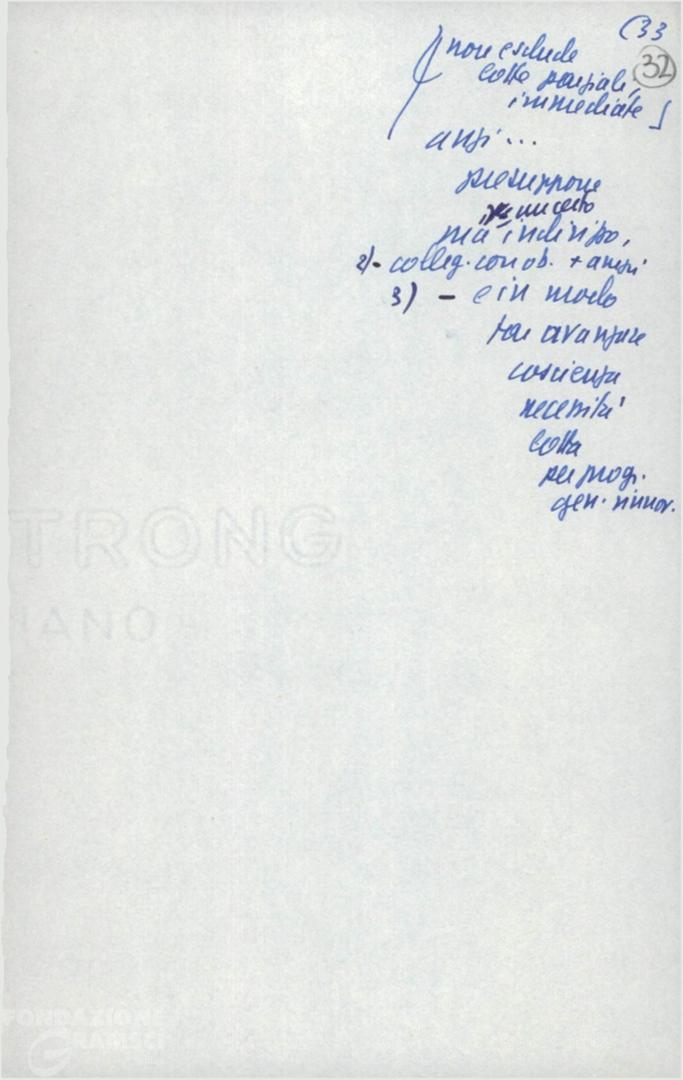 (33
32
non esclude
lotte parziali,
immediate
anzi...
presuppone
in un certo
indirizzo,
2)- colleg. con ob. + avanz
3) - e in modo
far avanzare
coscienza
necessità
lotta
per prog.
gen. rinnov.
TRONG
IANO
FONDAZIONE
GRAMSCI